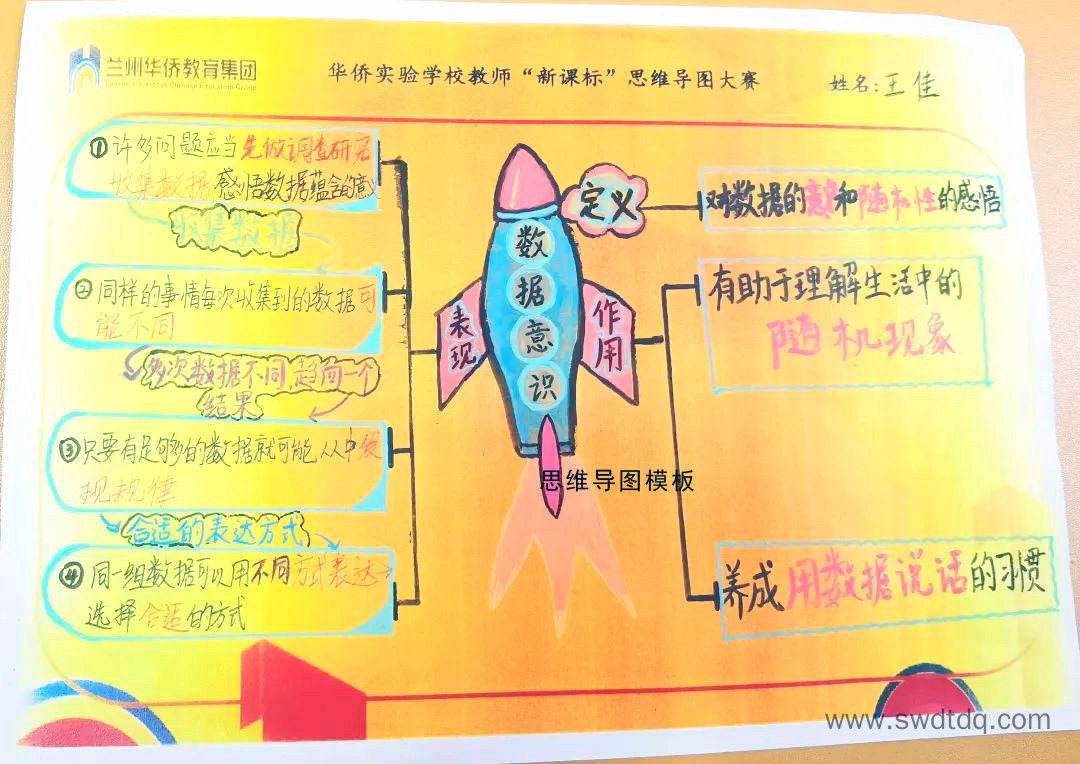 兰州华侨教育集团
华侨实验学校教师“新课标”思维导图大赛
姓名:王佳
①许多问题应当先做调查研究
收集数据感悟数据蕴含的意
收集数据
②同样的事情每次收集到的数据可
能不同
多次数据不同,趋向一个
结果
③只要有足够多的数据就可能从中发
现规律
合适的表达方式
④同一组数据可以用不同方式表达
选择合适的方式
表现
数据意识
定义
对数据的意义和随机性的感悟
作用
有助于理解生活中的
随机现象
养成用数据说话的习惯
思维导图模板
www.swdtdq.com